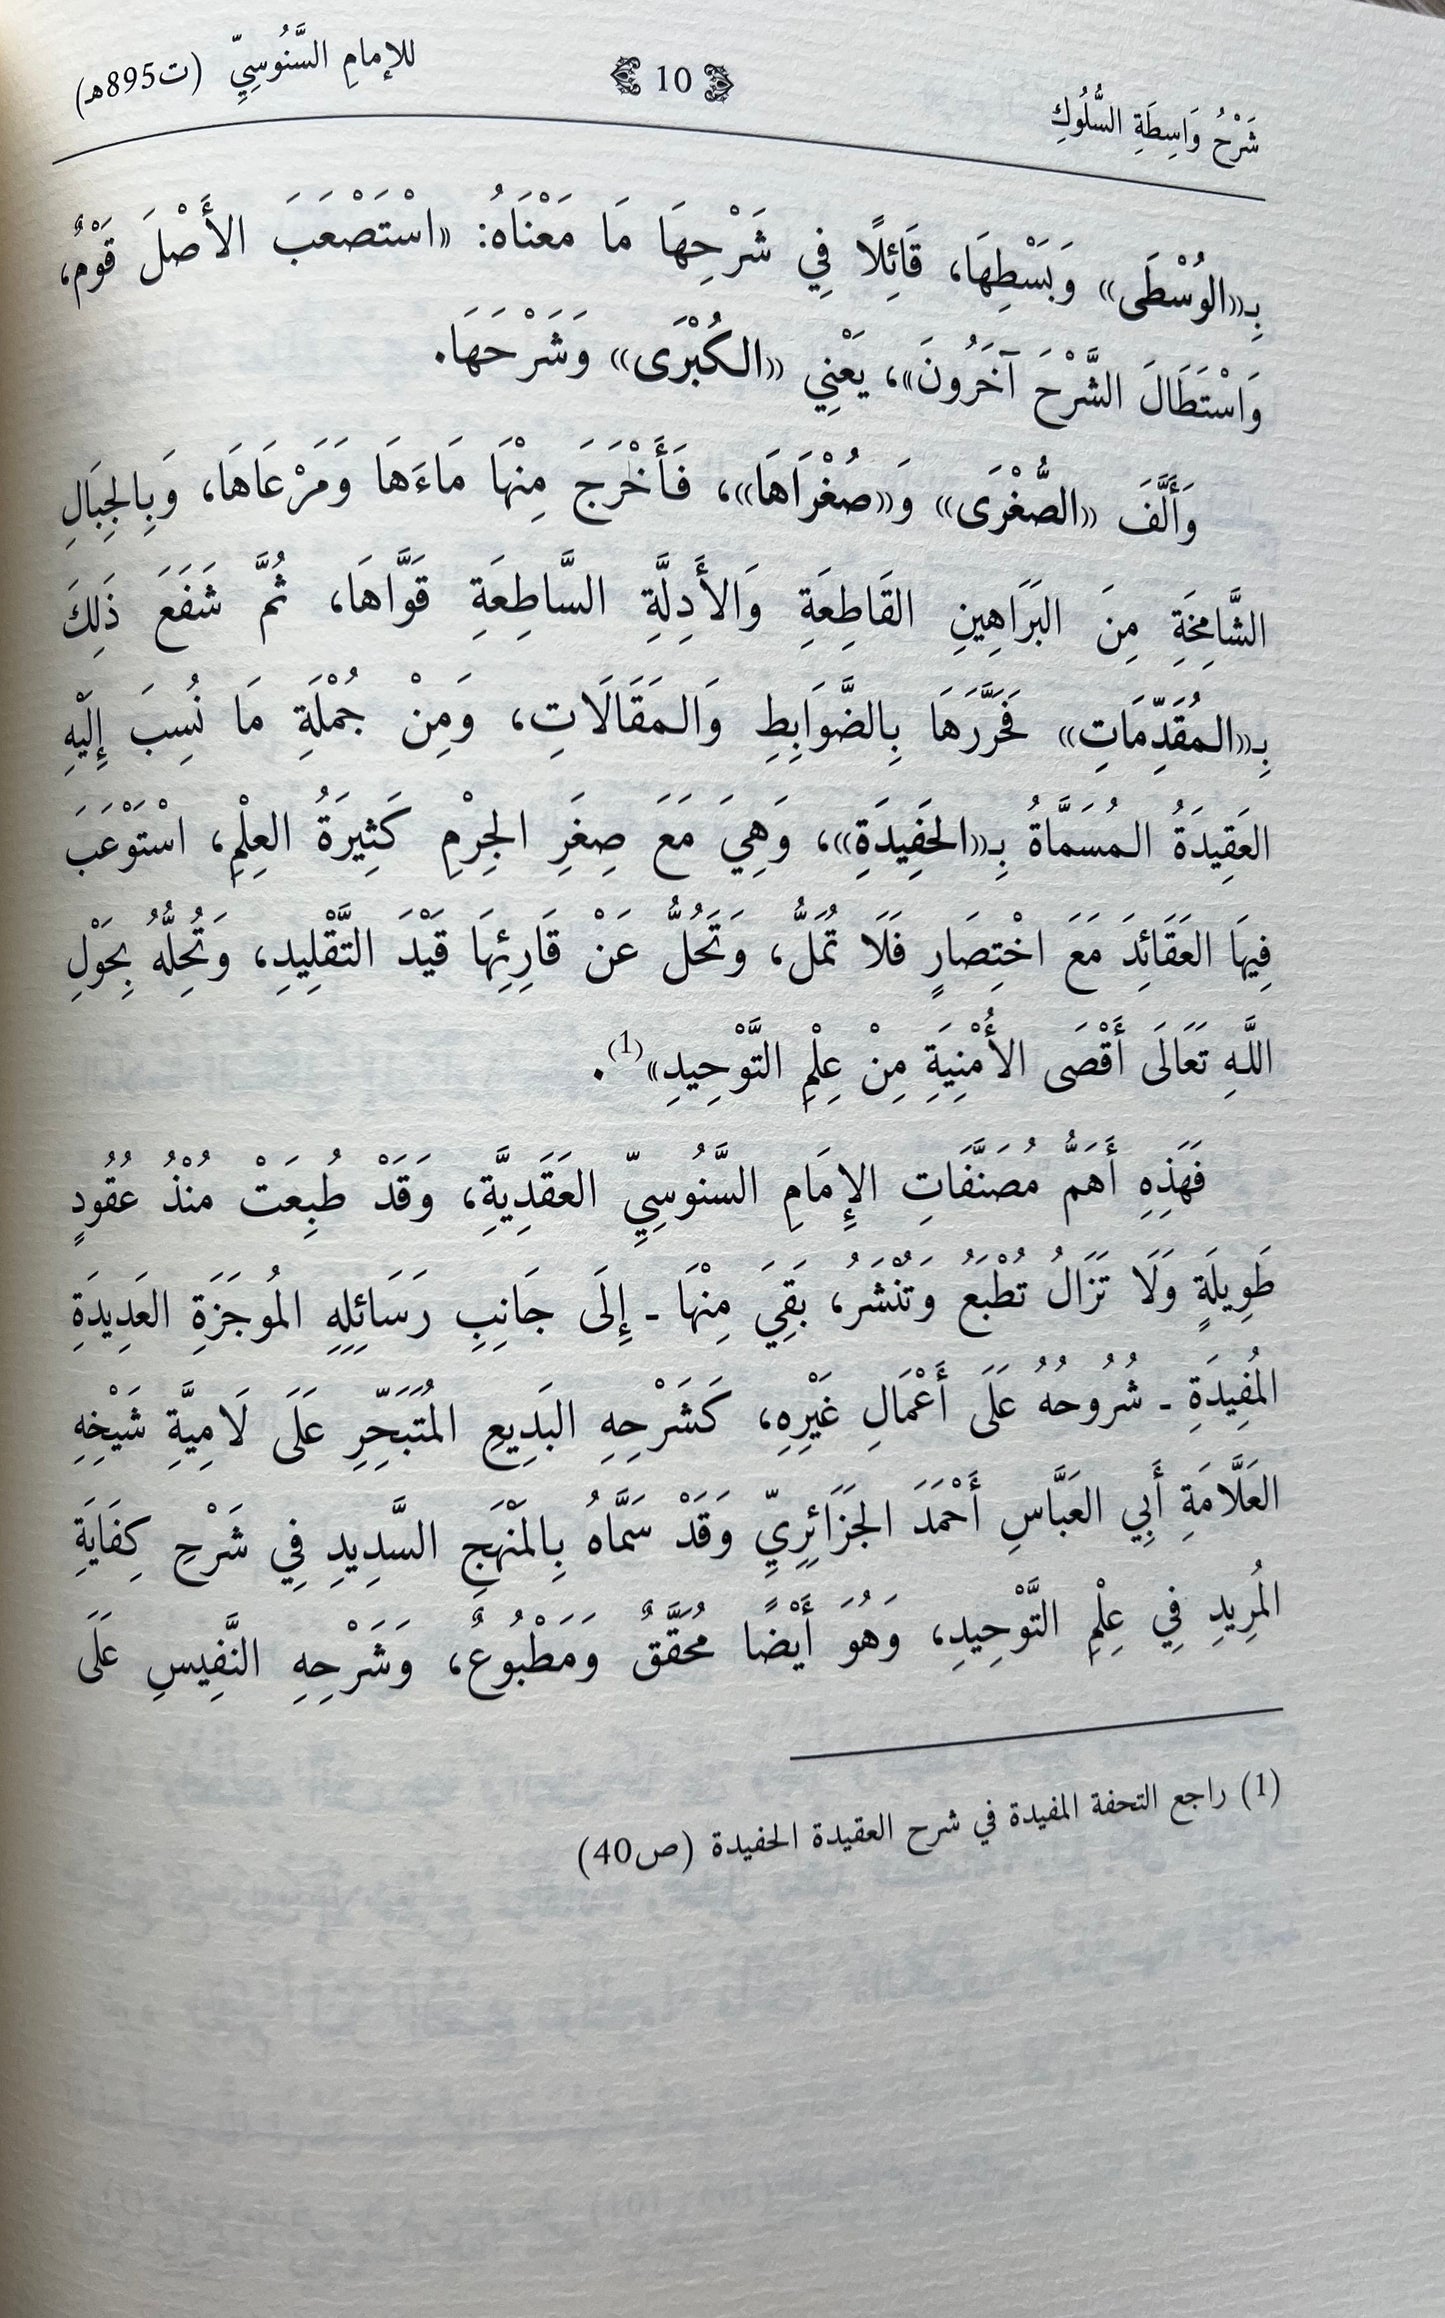 شَرْحُ وَاسِطَةِ السُّلُوكِ 10 للإمامِ السَّنُوسِيِّ (ت895هـ)
بِـ«الوُسْطَى» وَبَسْطِهَا، قَائِلًا فِي شَرْحِهَا مَا مَعْنَاهُ: «اسْتَصْعَبَ الأَصْلَ قَوْمٌ،
وَاسْتَطَالَ الشَّرْحَ آخَرُونَ»، يَعْنِي «الكُبْرَى» وَشَرْحَهَا.
وَأَلَّفَ «الصُّغْرَى» وَ«صُغْرَاهَا»، فَأَخْرَجَ مِنْهَا مَاءَهَا وَمَرْعَاهَا، وَبِالجِبَالِ
الشَّامِخَةِ مِنَ البَرَاهِينِ القَاطِعَةِ وَالأَدِلَّةِ السَّاطِعَةِ قَوَّاهَا، ثُمَّ شَفَعَ ذَلِكَ
بِـ«المُقَدِّمَاتِ» فَحَرَّرَهَا بِالضَّوَابِطِ وَالمَقَالَاتِ، وَمِنْ جُمْلَةِ مَا نُسِبَ إِلَيْهِ
العَقِيدَةُ المُسَمَّاةُ بِـ«الحَفِيدَةِ»، وَهِيَ مَعَ صِغَرِ الجِرْمِ كَثِيرَةُ العِلْمِ، اسْتَوْعَبَ
فِيهَا العَقَائِدَ مَعَ اخْتِصَارٍ فَلَا تُمَلُّ، وَتَحُلُّ عَنْ قَارِئِهَا قَيْدَ التَّقْلِيدِ، وَتُحِلُّهُ بِحَوْلِ
اللَّهِ تَعَالَى أَقْصَى الأُمْنِيَةِ مِنْ عِلْمِ التَّوْحِيدِ»(1).
فَهَذِهِ أَهَمُّ مُصَنَّفَاتِ الإِمَامِ السَّنُوسِيِّ العَقَدِيَّةِ، وَقَدْ طُبِعَتْ مُنْذُ عُقُودٍ
طَوِيلَةٍ وَلَا تَزَالُ تُطْبَعُ وَتُنْشَرُ، بَقِيَ مِنْهَا ـ إِلَى جَانِبِ رَسَائِلِهِ المُوجَزَةِ العَدِيدَةِ
المُفِيدَةِ ـ شُرُوحُهُ عَلَى أَعْمَالِ غَيْرِهِ، كَشَرْحِهِ البَدِيعِ المُتَبَحِّرِ عَلَى لَامِيَّةِ شَيْخِهِ
العَلَّامَةِ أَبِي العَبَّاسِ أَحْمَدَ الجَزَائِرِيِّ وَقَدْ سَمَّاهُ بِالمَنْهَجِ السَّدِيدِ فِي شَرْحِ كِفَايَةِ
المُرِيدِ فِي عِلْمِ التَّوْحِيدِ، وَهُوَ أَيْضًا مُحَقَّقٌ وَمَطْبُوعٌ، وَشَرْحِهِ النَّفِيسِ عَلَى
(1) راجع التحفة المفيدة في شرح العقيدة الحفيدة (ص40)